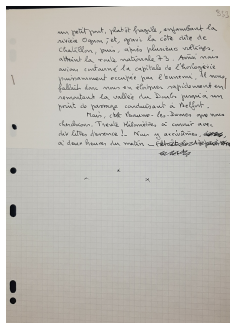 un petit pont, plutôt fragile, enjambant la
rivière Ognon ; et, après la côte dite de
Chatillon, puis, après plusieurs collines,
atteint la route nationale 73. Ainsi nous
avions contourné la capitale de l'horlogerie
puissamment occupée par l'ennemi. Il nous
fallait donc nous en éloigner rapidement en
remontant la vallée du Doubs jusqu'à un
point de passage conduisant à Belfort.
Mais, c'est Beaume-les-Dames que nous
cherchions. Trente kilomètres à courir avec
dix litres d'essence ! Nous y arrivâmes,
à deux heures du matin